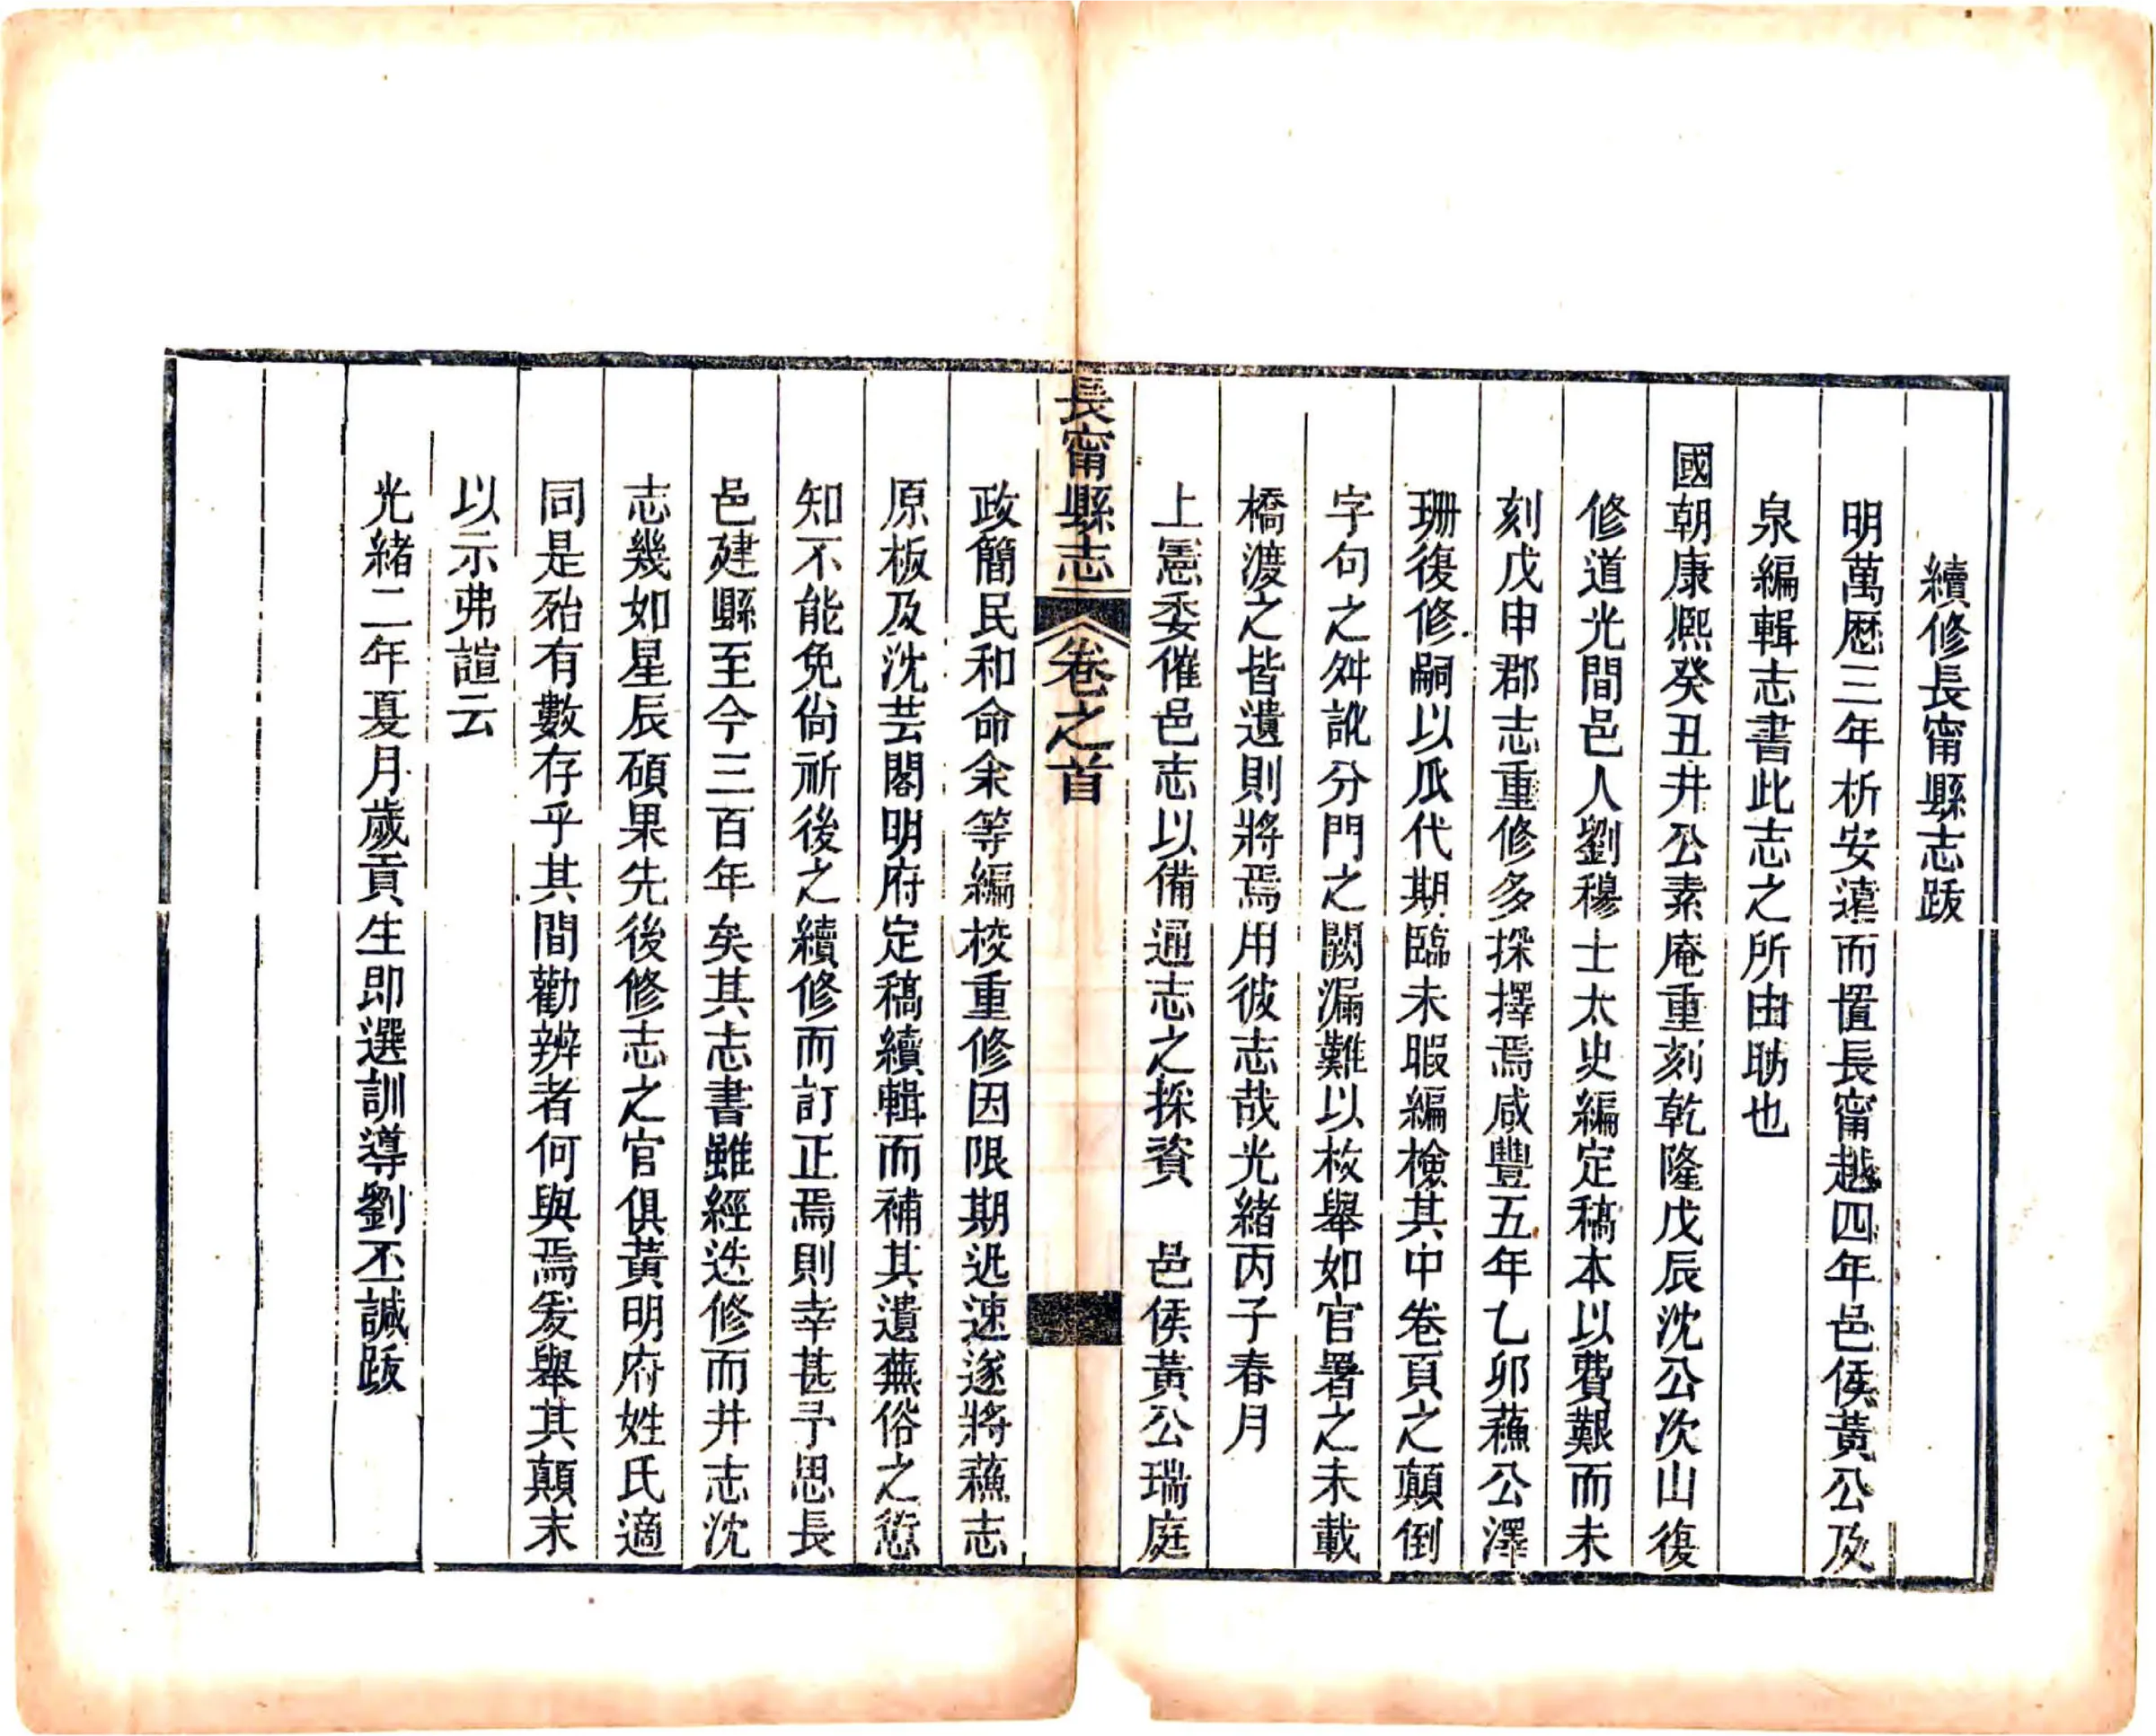 續修長甯縣志跋
明萬歷三年析安遠而置長甯越四年邑侯黃公及
泉編輯志書此志之所由昉也
國朝康熙癸丑井公素庵重刻乾隆戊辰沈公次山復
修道光間邑人劉穆士太史編定稿本以費艱而未
刻戊申郡志重修多採擇焉咸豐五年乙卯蘓公澤
珊復修嗣以瓜代期臨未暇編檢其中卷頁之顛倒
字句之舛訛分門之闕漏難以枚舉如官署之未載
橋渡之皆遺則將焉用彼志哉光緒丙子春月
上憲委催邑志以備通志之採資 邑侯黃公瑞庭
長甯縣志 卷之首
政簡民和命余等編校重修因限期迯速遂將蘓志
原板及沈芸閣明府定稿續輯而補其遺蕪俗之愆
知不能免尙祈後之續修而訂正焉則幸甚予思長
邑建縣至今三百年矣其志書雖經迭修而井志沈
志幾如星辰碩果先後修志之官俱黃明府姓氏適
同是殆有數存乎其間勸辨者何與焉爰舉其顛末
以示弗諠云
光緒二年夏月歲貢生即選訓導劉丕諴跋